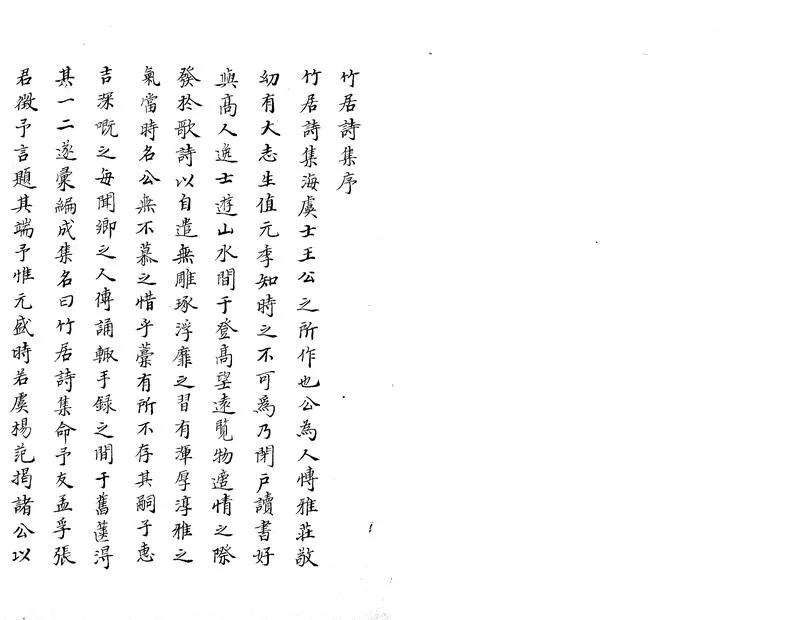 竹居詩集序
竹居詩集海虞士王公之所作也公為人慱雅莊敬
幼有大志生值元季知時之不可爲乃閉戶讀書好
與髙人逸士遊山水間于登髙望遠覧物適情之際
發扵歌詩以自遣無雕琢浮靡之習有渾厚淳雅之
氣當時名公無不慕之惜乎藁有所不存其嗣子恵
吉深嘅之每聞鄉之人傳誦輙手録之間于舊箧淂
其一二遂彚編成集名曰竹居詩集命予友孟孚張
君徴予言題其端予惟元盛時若虞楊范揭諸公以